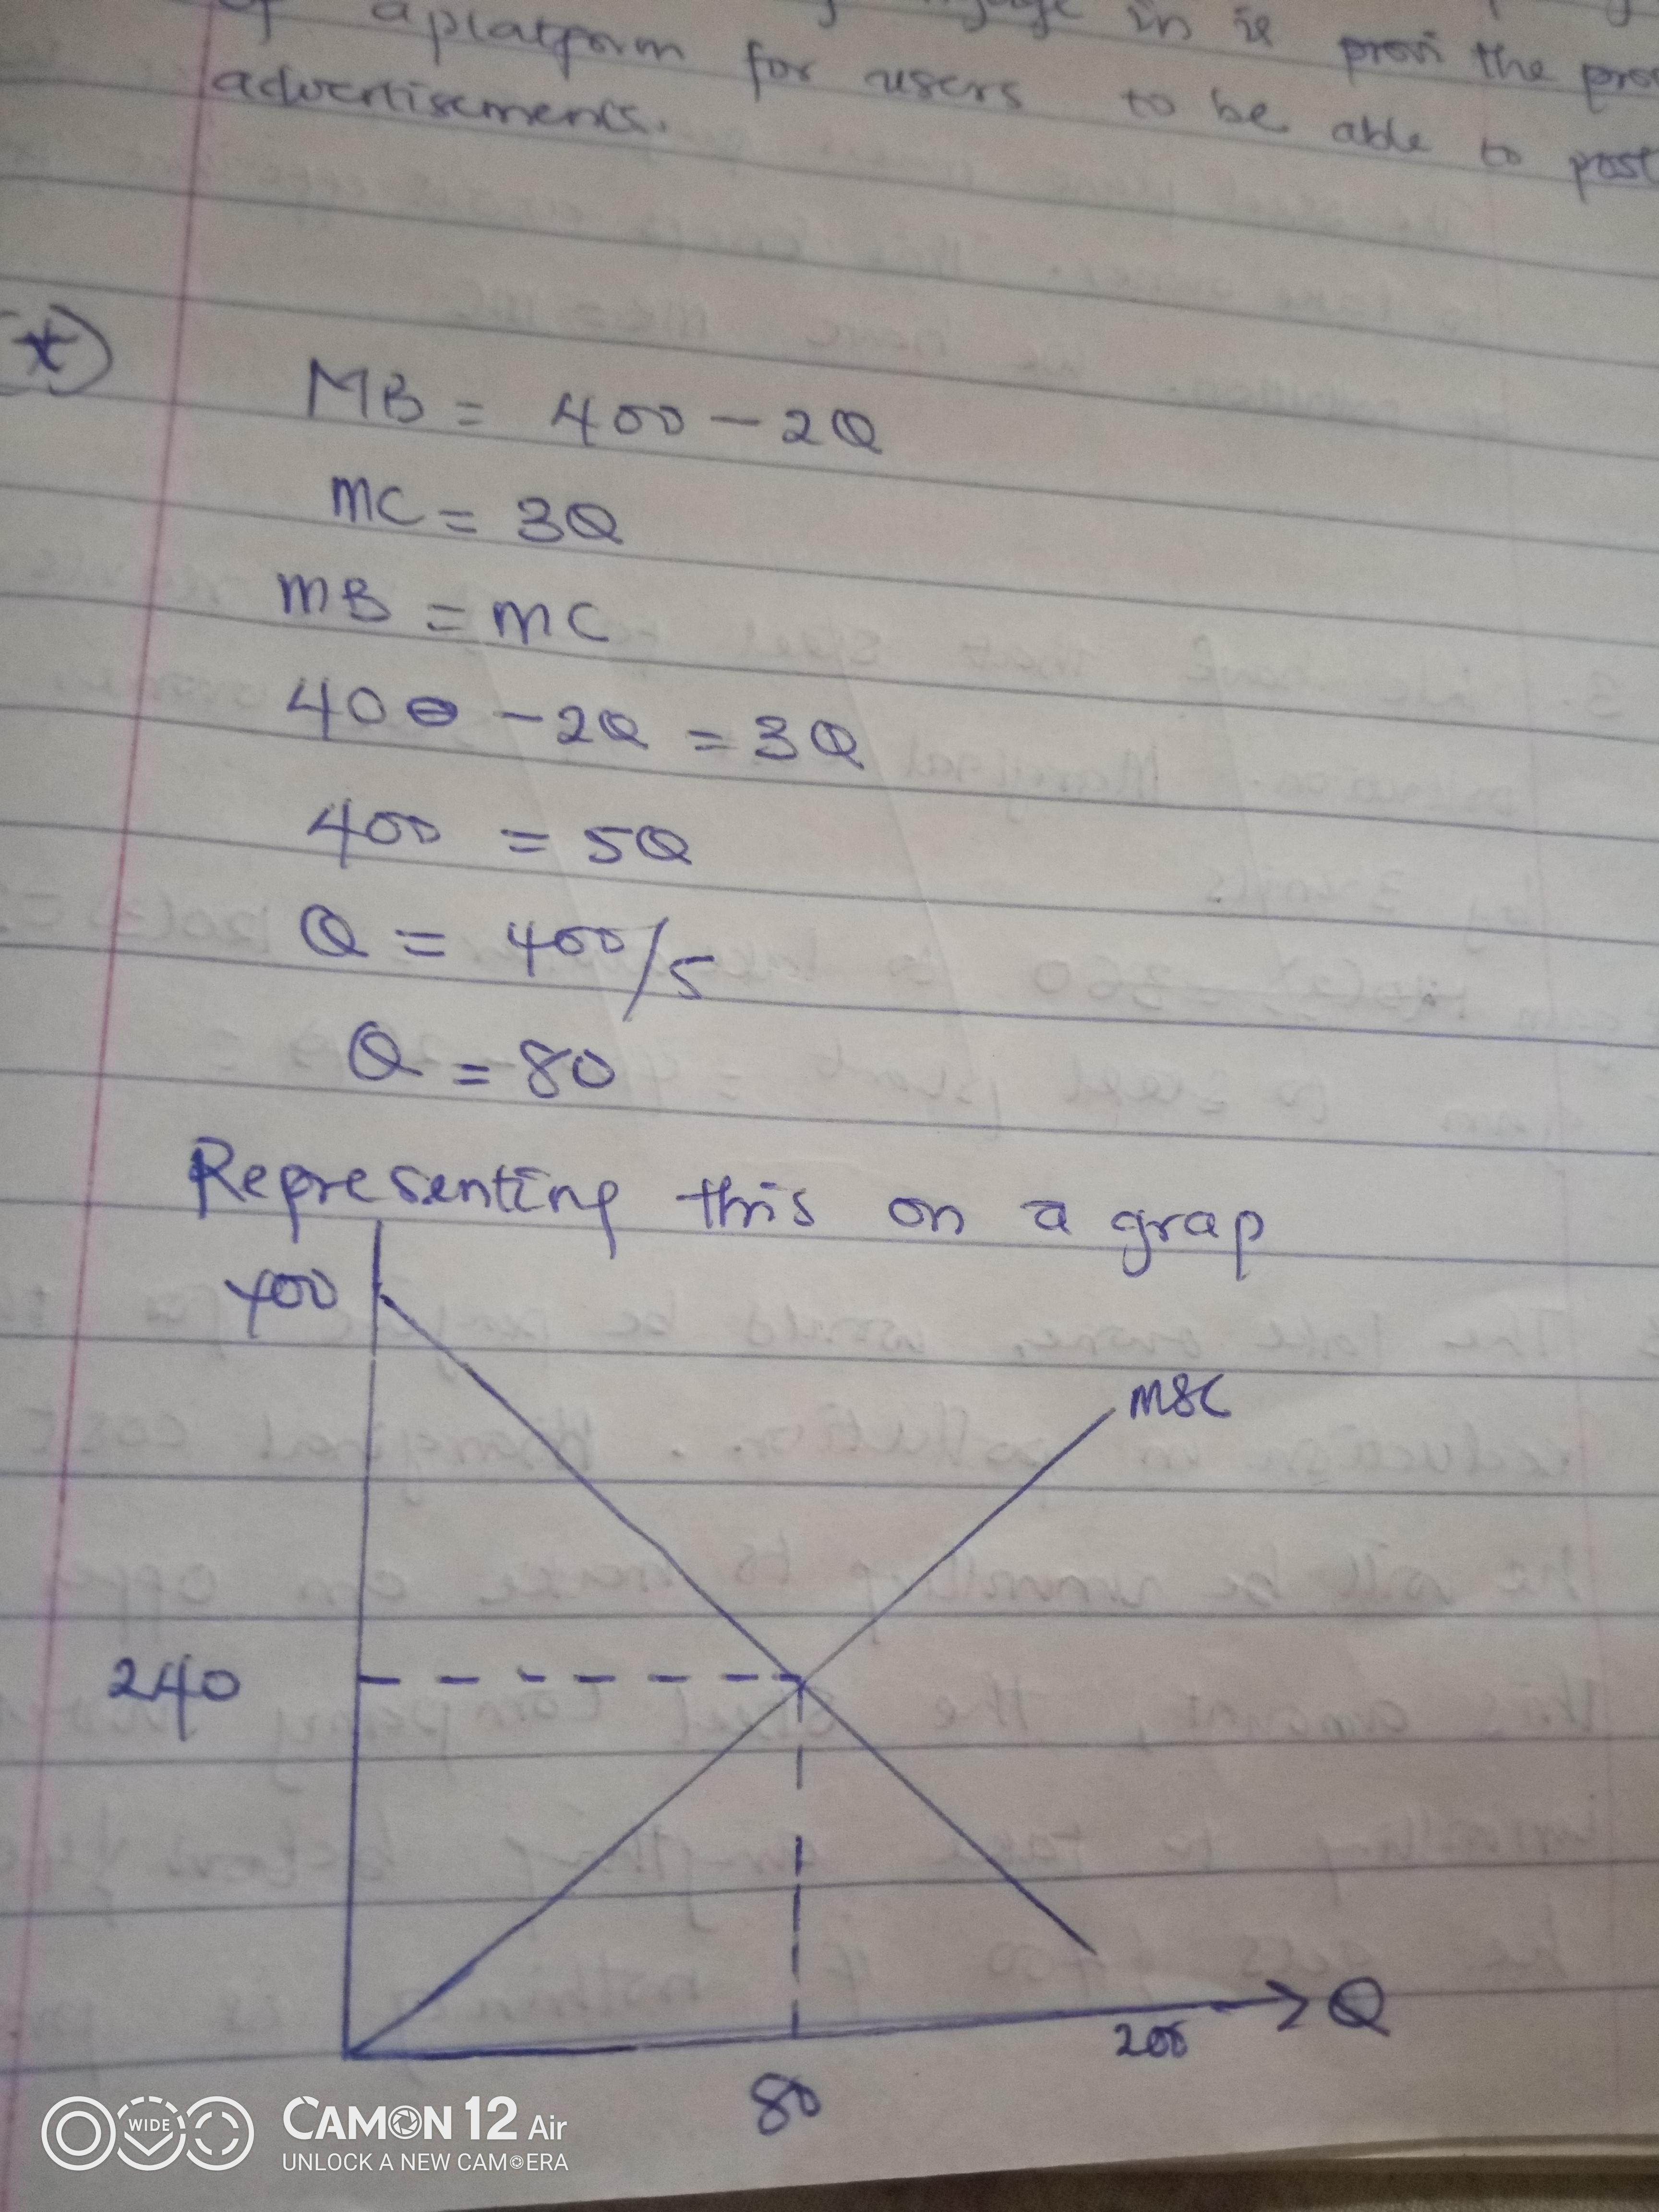 a platform for users to be able to post
advertisements.
MB = 400 - 2Q
MC = 3Q
MB = MC
400 - 2Q = 3Q
400 = 5Q
Q = 400/5
Q = 80
Representing this on a grap
400
MSC
240
200
Q
80
WIDE
CAMON 12 Air
UNLOCK A NEW CAMERA